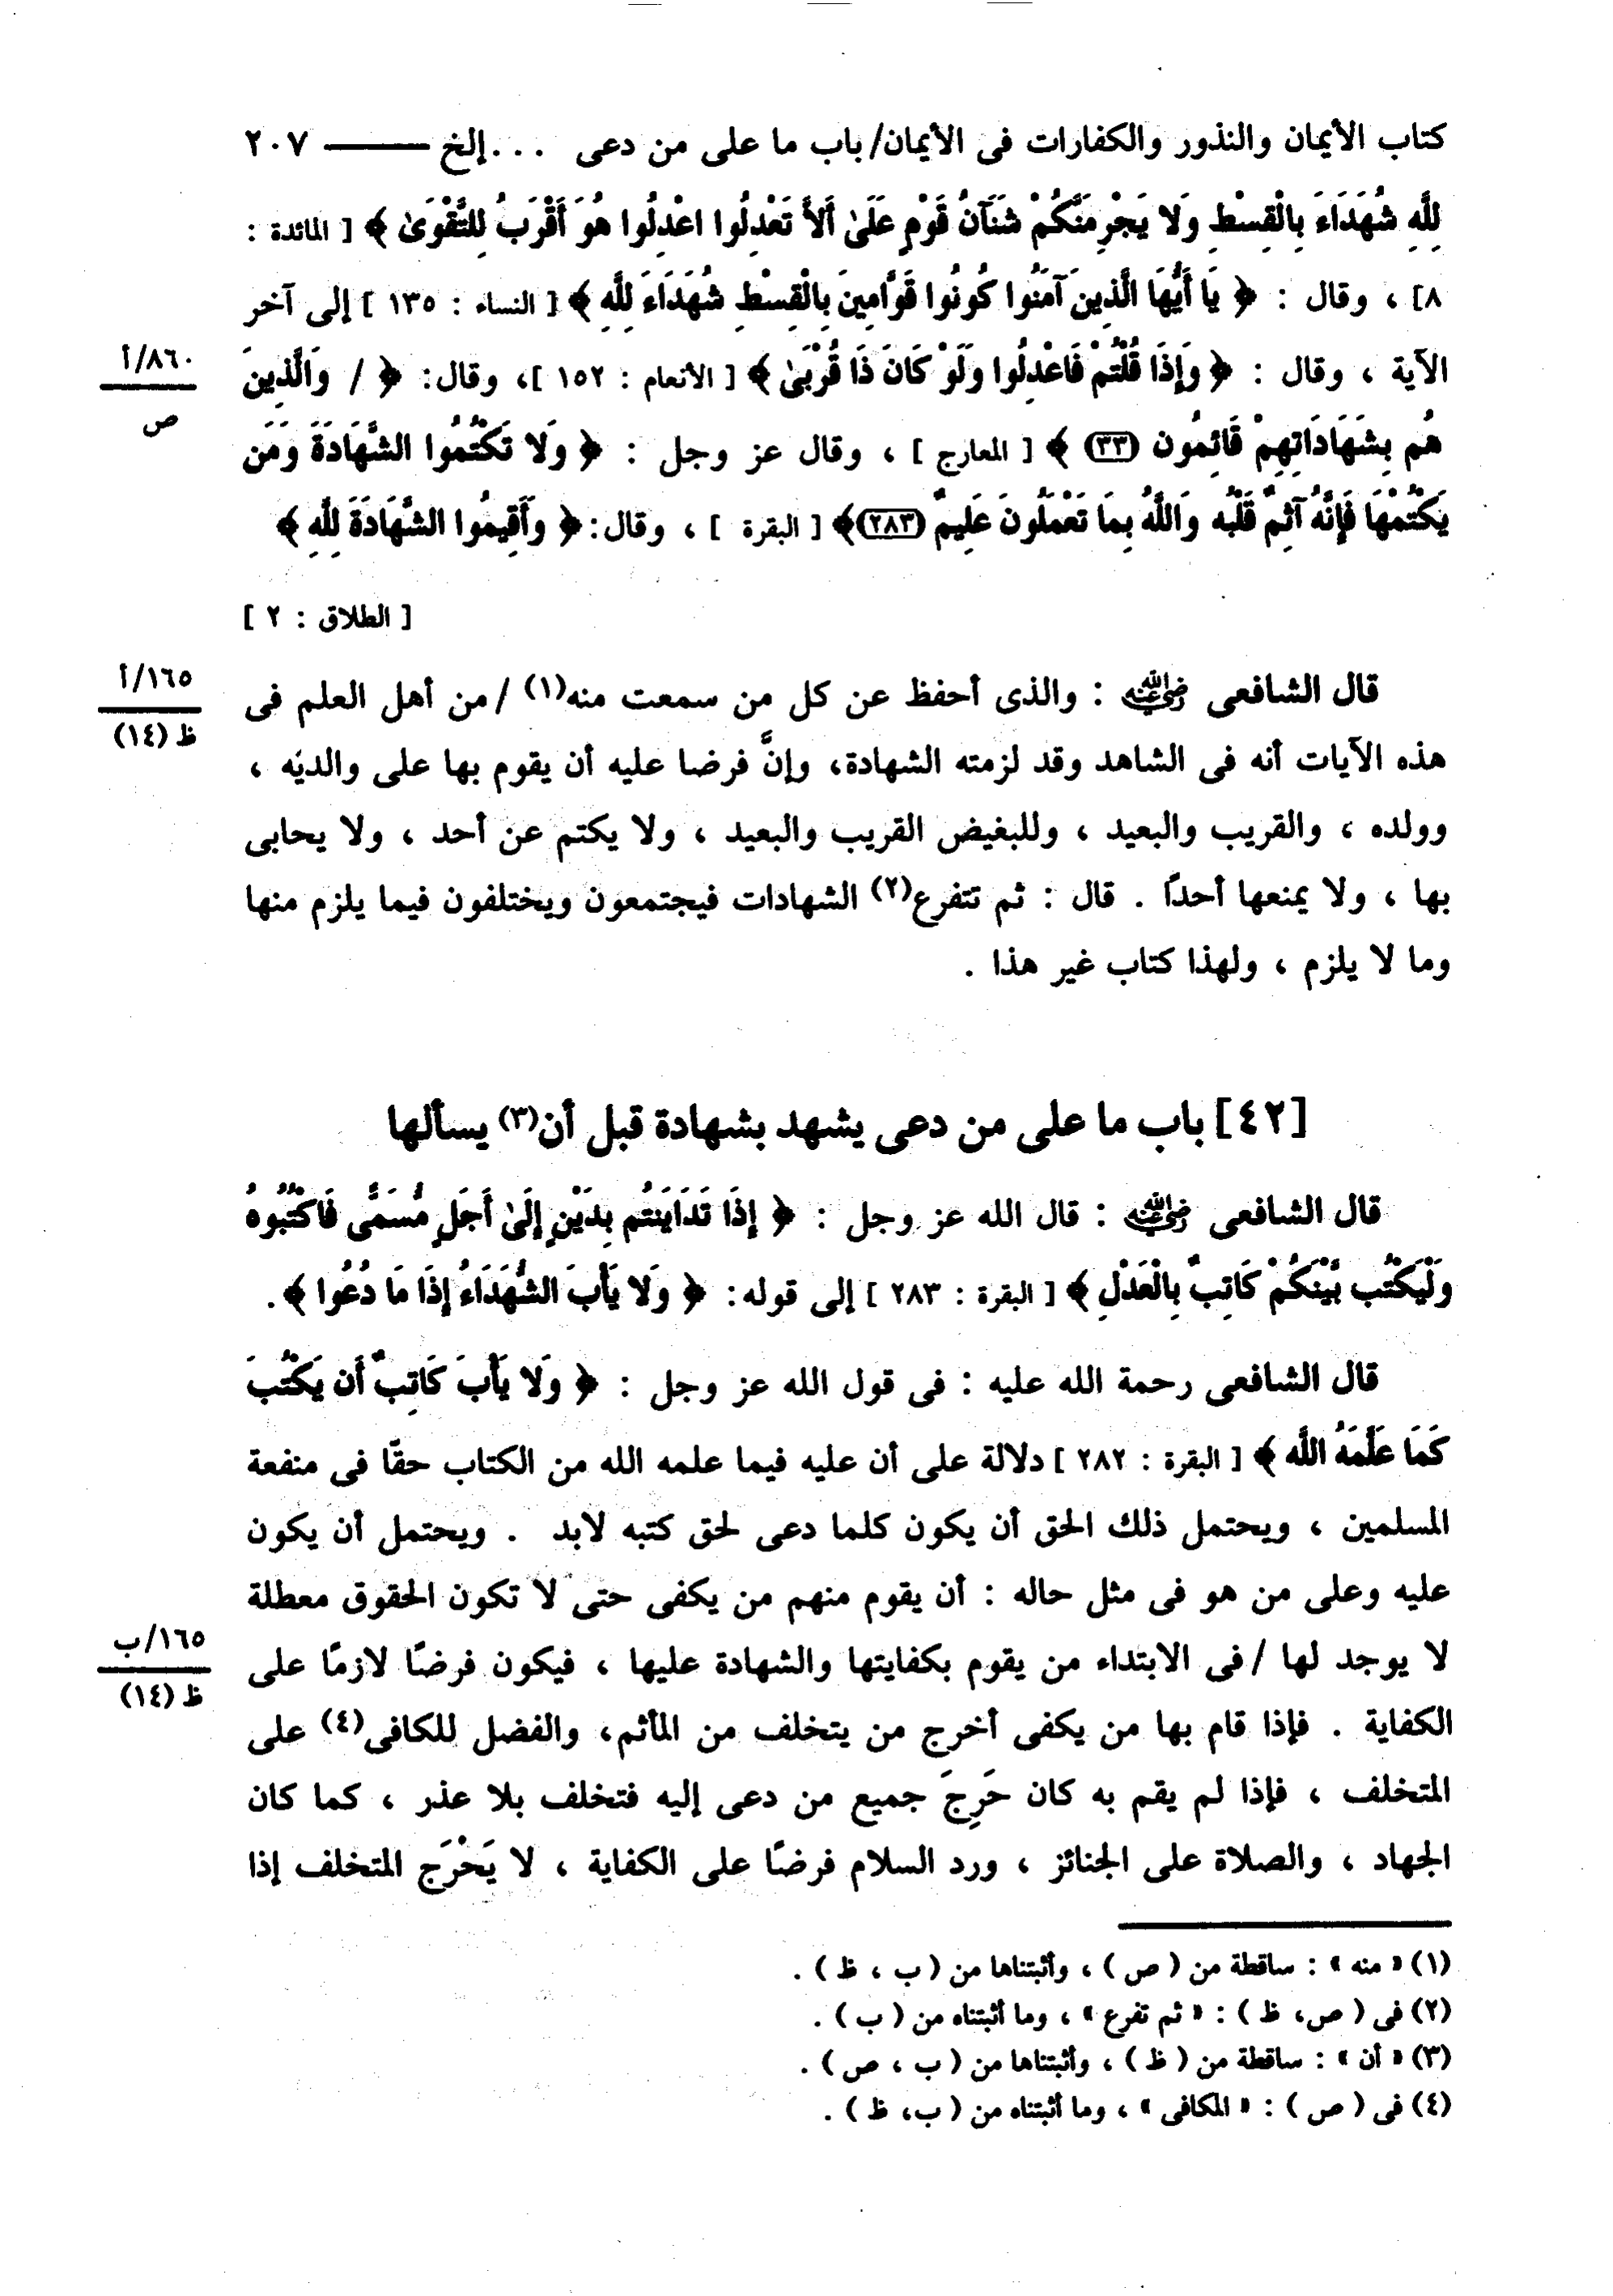 كتاب الأيمان والنذور والكفارات فى الأيمان/ باب ما على من دعى ... إلخ ——— ٢٠٧
لِلَّهِ شُهَدَاءَ بِالْقِسْطِ وَلا يَجْرِمَنَّكُمْ شَنَآنُ قَوْمٍ عَلَىٰ أَلاَّ تَعْدِلُوا اعْدِلُوا هُوَ أَقْرَبُ لِلتَّقْوَىٰ ﴾ [ المائدة :
٨] ، وقال : ﴿ يَا أَيُّهَا الَّذِينَ آمَنُوا كُونُوا قَوَّامِينَ بِالْقِسْطِ شُهَدَاءَ لِلَّهِ ﴾ [ النساء : ١٣٥ ] إلى آخر
الآية ، وقال : ﴿ وَإِذَا قُلْتُمْ فَاعْدِلُوا وَلَوْ كَانَ ذَا قُرْبَىٰ ﴾ [ الأنعام : ١٥٢ ]، وقال: ﴿ / وَالَّذِينَ
٨٦٠/أ
ص
هُم بِشَهَادَاتِهِمْ قَائِمُون (٣٣) ﴾ [ المعارج ] ، وقال عز وجل : ﴿ وَلا تَكْتُمُوا الشَّهَادَةَ وَمَن
يَكْتُمْهَا فَإِنَّهُ آثِمٌ قَلْبُه وَاللَّهُ بِمَا تَعْمَلُونَ عَلِيمٌ (٢٨٣)﴾ [ البقرة ] ، وقال: ﴿ وَأَقِيمُوا الشَّهَادَةَ لِلَّهِ ﴾
[ الطلاق : ٢ ]
قال الشافعى رضي الله عنه : والذى أحفظ عن كل من سمعت منه(١) / من أهل العلم فى
١٦٥/أ
ظ (١٤)
هذه الآيات أنه فى الشاهد وقد لزمته الشهادة، وإنَّ فرضا عليه أن يقوم بها على والديْه ،
وولده ، والقريب والبعيد ، وللبغيض القريب والبعيد ، ولا يكتم عن أحد ، ولا يحابى
بها ، ولا يمنعها أحدًا . قال : ثم تتفرع(٢) الشهادات فيجتمعون ويختلفون فيما يلزم منها
وما لا يلزم ، ولهذا كتاب غير هذا .
[٤٢] باب ما على من دعى يشهد بشهادة قبل أن(٣) يسألها
قال الشافعى رضي الله عنه : قال الله عز وجل : ﴿ إِذَا تَدَايَنتُم بِدَيْنٍ إِلَىٰ أَجَلٍ مُّسَمًّى فَاكْتُبُوهُ
وَلْيَكْتُب بَّيْنَكُمْ كَاتِبٌ بِالْعَدْلِ ﴾ [ البقرة : ٢٨٣ ] إلى قوله: ﴿ وَلا يَأْبَ الشُّهَدَاءُ إِذَا مَا دُعُوا ﴾.
قال الشافعى رحمة الله عليه : فى قول الله عز وجل : ﴿ وَلا يَأْبَ كَاتِبٌ أَن يَكْتُبَ
كَمَا عَلَّمَهُ اللَّه ﴾ [ البقرة : ٢٨٢ ] دلالة على أن عليه فيما علمه الله من الكتاب حقّا فى منفعة
المسلمين ، ويحتمل ذلك الحق أن يكون كلما دعى لحق كتبه لابد . ويحتمل أن يكون
عليه وعلى من هو فى مثل حاله : أن يقوم منهم من يكفى حتى لا تكون الحقوق معطلة
لا يوجد لها / فى الابتداء من يقوم بكفايتها والشهادة عليها ، فيكون فرضًا لازمًا على
١٦٥/ب
ظ (١٤)
الكفاية . فإذا قام بها من يكفى أخرج من يتخلف من المأثم، والفضل للكافى(٤) على
المتخلف ، فإذا لم يقم به كان حَرِجَ جميع من دعى إليه فتخلف بلا عذر ، كما كان
الجهاد ، والصلاة على الجنائز ، ورد السلام فرضًا على الكفاية ، لا يَحْرَج المتخلف إذا
(١) « منه » : ساقطة من ( ص ) ، وأثبتناها من ( ب ، ظ ) .
(٢) فى ( ص، ظ ) : « ثم تفرع » ، وما أثبتناه من ( ب ) .
(٣) « أن » : ساقطة من ( ظ ) ، وأثبتناها من ( ب ، ص ) .
(٤) فى ( ص ) : « المكافى » ، وما أثبتناه من ( ب، ظ ) .